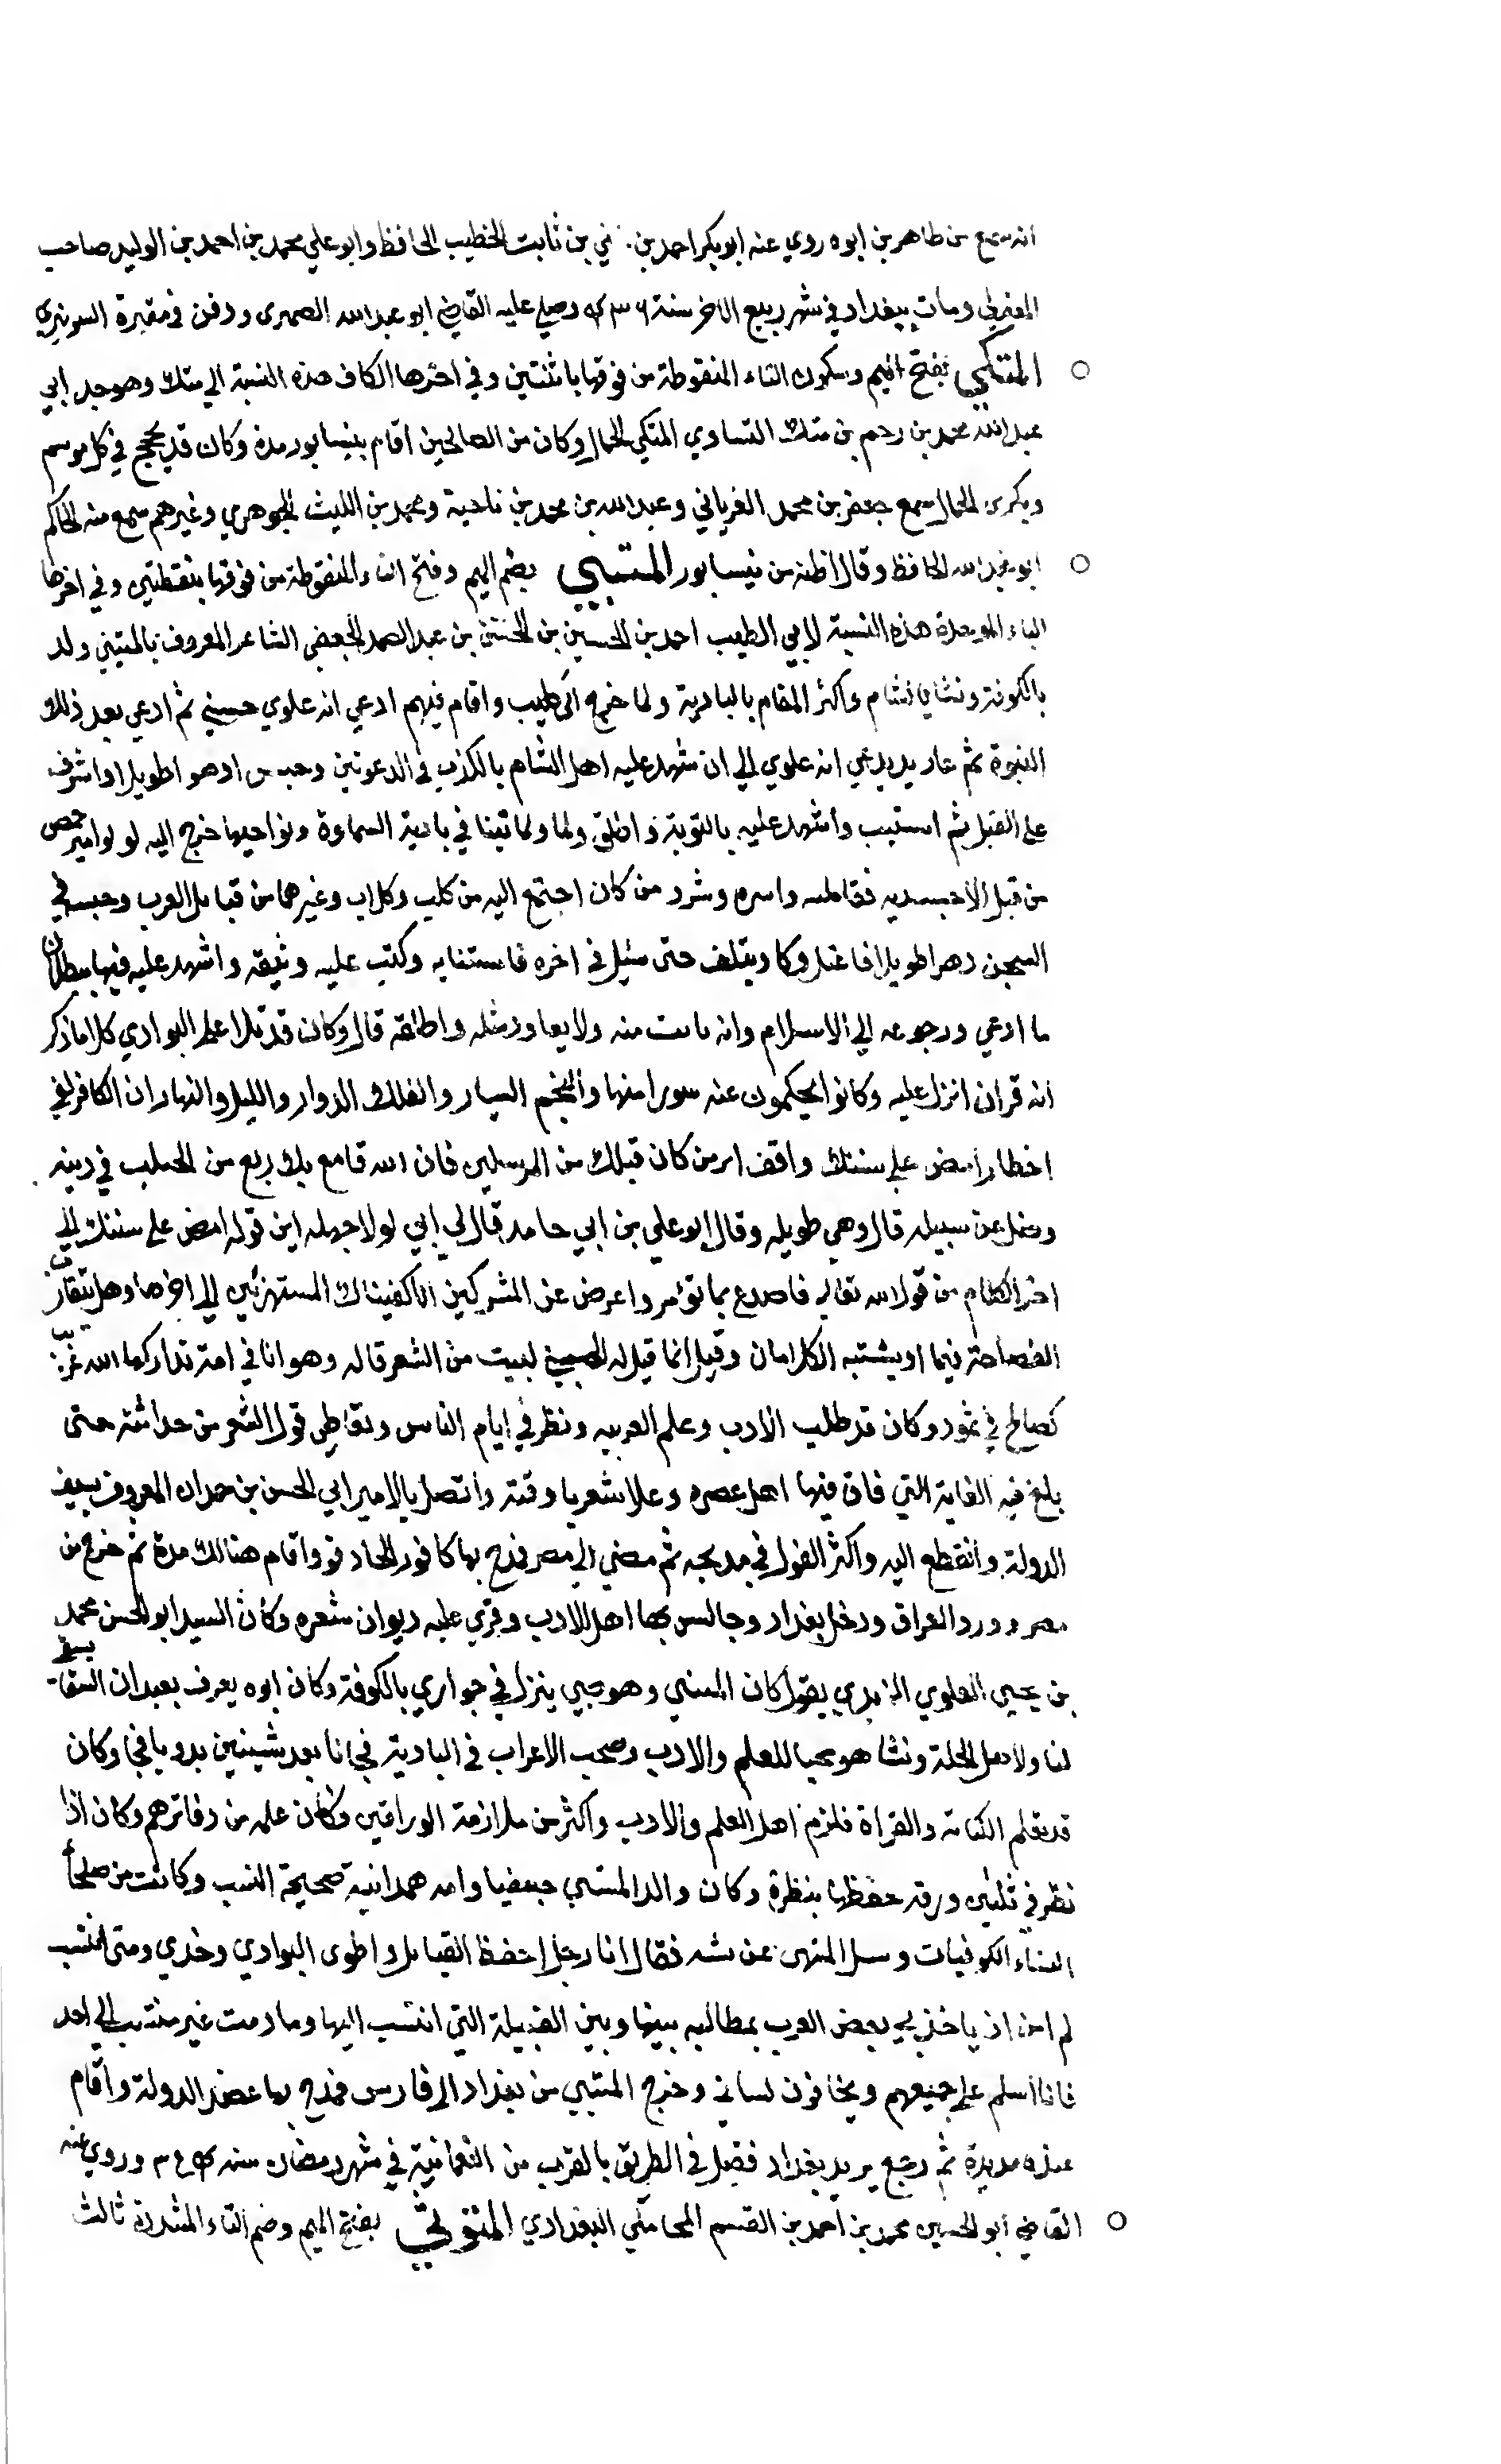 انه سمع من طاهر بن ابوه روي عنه ابو بكر احمد بن علي بن ثابت الخطيب الحافظ وابو علي محمد بن احمد بن الوليد صاحب
المغربي ومات ببغداد في شهر ربيع الاخر سنة وصلى عليه القاضي ابو عبد الله الصمرى ودفن في مقبرة السونيزي
المتكي بفتح الميم وسكون التاء المنقوطة من فوقها باثنتين وفي اخرها الكاف هذه النسبة الي متك وهو جد ابي
عبد الله محمد بن رحم بن متك التساوي المتكي الجمال وكان من الصالحين اقام بنيسابور مدة وكان قد يحج في كل موسم
ويكرى الجمال سمع جعفر بن محمد الفرياني وعبد الله بن محمد بن ناحية ومحمد بن الليث الجوهري وغيرهم سمع منه الحاكم
ابو عبد الله الحافظ وقال اظنه من نيسابور المتنبي بضم الميم وفتح التاء المنقوطة من فوقها بنقطتين وفي اخرها
الباء الموحدة هذه النسبة لابي الطيب احمد بن الحسين بن الحسن بن عبد الصمد الجعفي الشاعر المعروف بالمتنبي ولد
بالكوفة ونشا بالشام واكثر المقام بالبادية ولما خرج الى كليب واقام فيهم ادعي انه علوي حسني ثم ادعي بعد ذلك
النبوة ثم عاد يدعي انه علوي الي ان شهد عليه اهل الشام بالكذب في الدعوتين وحبس دهرا طويلا واشرف
على القتل ثم استتيب واشهد عليه بالتوبة واطلق ولما تنبا في بادية السماوة ونواحيها خرج اليه لولو امير حمص
من قبل الاخشيديه فقاتله واسره وشرد من كان اجتمع اليه من كلب وكلاب وغيرهما من قبايل العرب وحبسه في
السجن دهرا طويلا فاعتل وكاد يتلف حتى سئل في اخره فاستتابه وكتب عليه وثيقه واشهد عليه فيها ببطلان
ما ادعي ورجوعه الي الاسلام وانه تايب منه ولا يعاود مثله واطلقه قال وكان قد تلا على البوادي كلاما ذكر
انه قران انزل عليه وكانوا يحكمون عنه سورا منها والنجم السيار والفلك الدوار والليل والنهار ان الكافر لفي
اخطار امض على سننك واقف اثر من كان قبلك من المرسلين فان الله قامع بك زيع من الحد في دينه
وضل عن سبيله قال وهي طويله وقال ابو علي بن ابي حامد قال لي ابي لولا جهله اين قوله امض على سننك الي
اخر الكلام من قول الله تعالى فاصدع بما تؤمر واعرض عن المشركين انا كفيناك المستهزئين الي اخرها وهل تتقارب
الفصاحة فيهما او يشتبه الكلامان وقيل انما قيل له المتنبي لبيت من الشعر قاله وهو انا في امة تداركها الله غريب
كصالح في ثمود وكان قد طلب الادب وعلم العربيه ونظر في ايام الناس وتعاطى قول الشعر من حداثته حتى
بلغ فيه الغاية التي فاق فيها اهل عصره وعلا شعرا وقته واتصل بالامير ابي الحسن بن حمدان المعروف بسيف
الدولة وانقطع اليه واكثر القول في مديحه ثم مضى الي مصر فمدح بها كافور الخادم واقام هنالك مدة ثم خرج من
مصر وورد العراق ودخل بغداد وجالس بها اهل الادب وقري عليه ديوان شعره وكان السيد ابو الحسن محمد
بن يحيي العلوي الزيدي يقول كان المتنبي وهو صبي ينزل في جواري بالكوفة وكان ابوه يعرف بعبدان السقا يسقي
لنا ولاهل المحلة ونشا هو محبا للعلم والادب وصحب الاعراب في البادية فجانا بعد سنين بدويا قحا وكان
قد تعلم الكتابة والقراة فلزم اهل العلم والادب واكثر من ملازمة الوراقين وكان علمه من دفاترهم وكان اذا
نظر في ثلثين ورقه حفظها بنظرة وكان والد المتنبي جعفيا وامه همدانية صحيحة النسب وكانت من صلحا
النساء الكوفيات وسيل المتنبي عن نسبه فقال انا رجل احفظ القبايل واطوى البوادي وحدي ومتى انتسب
لم امن ان ياخذني بعض العرب بمطالبه بينها وبين القبيلة التي انتسب اليها وما دمت غير منتسب الي احد
فانا اسلم على جميعهم ويخافون لساني وخرج المتنبي من بغداد الى فارس فمدح بها عضد الدولة واقام
عنده مديدة ثم رجع يريد بغداد فقتل في الطريق بالقرب من النعمانية في شهر رمضان سنه وروي عنه
القاضي ابو الحسين محمد بن احمد بن القسم المحاملي البغدادي المتوثي بفتح الميم وضم التاء المشددة ثالث